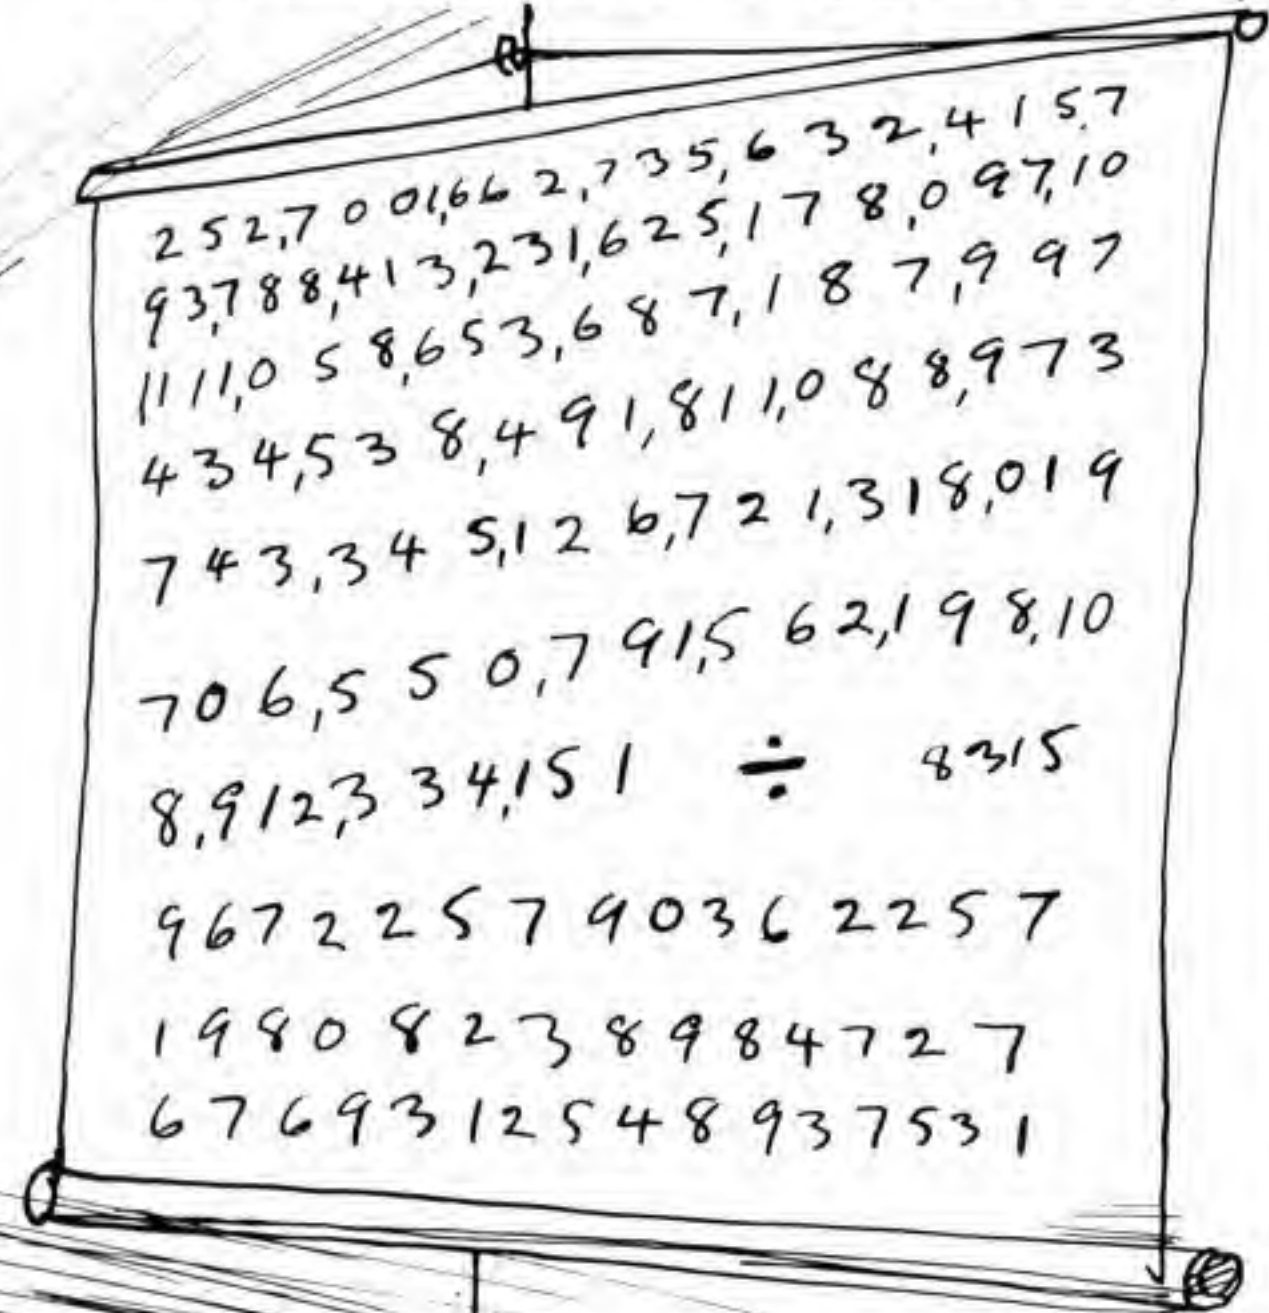 252,7001,662,735,632,415,7
93,788,413,231,625,178,097,10
1111,058,653,687,187,997
434,538,491,811,088,973
743,345,126,721,318,019
706,550,791,562,198,10
8,912,334,151 ÷ 8315
967225790362257
19808238984727
6769312548937531